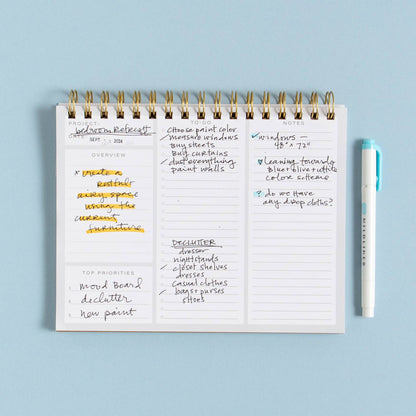 PROJECT:
bedroom Refresh
DATE
SEPT 2024
OVERVIEW
* create a
restful
airy space
using the
current
furniture
TOP PRIORITIES
mood Board
declutter
new paint
TO-DO
choose paint color
✓ measure windows
Buy sheets
Buy curtains
✓ dust everything
paint walls
DECLUTTER
dresser
nightstands
✓ closet shelves
dresses
casual clothes
✓ bags + purses
shoes
NOTES
✓ windows —
48" x 72"
leaning towards
Blue + olive + white
color scheme
? do we have
any drop cloths?
MIDLINER